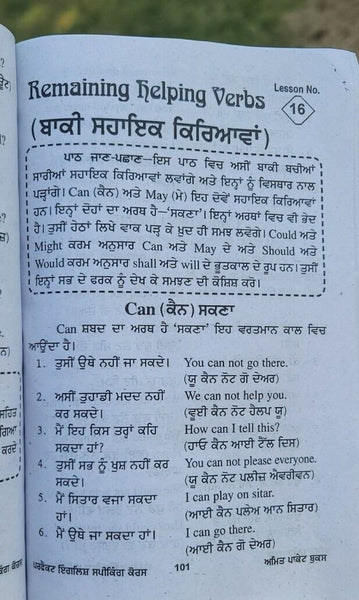 Remaining Helping Verbs
Lesson No.
16
(ਬਾਕੀ ਸਹਾਇਕ ਕਿਰਿਆਵਾਂ)
ਪਾਠ ਜਾਣ-ਪਛਾਣ—ਇਸ ਪਾਠ ਵਿਚ ਅਸੀਂ ਬਾਕੀ ਬਚੀਆਂ
ਸਾਰੀਆਂ ਸਹਾਇਕ ਕਿਰਿਆਵਾਂ ਲਵਾਂਗੇ ਅਤੇ ਇਨ੍ਹਾਂ ਨੂੰ ਵਿਸਥਾਰ ਨਾਲ
ਪੜ੍ਹਾਂਗੇ। Can (ਕੈਨ) ਅਤੇ May (ਮੇ) ਇਹ ਦੋਵੇਂ ਸਹਾਇਕ ਕਿਰਿਆਵਾਂ
ਹਨ। ਇਨ੍ਹਾਂ ਦੋਹਾਂ ਦਾ ਅਰਥ ਹੈ—'ਸਕਣਾ'। ਇਨ੍ਹਾਂ ਅਰਥਾਂ ਵਿਚ ਵੀ ਭੇਦ
ਹੈ। ਤੁਸੀਂ ਹੇਠਾਂ ਲਿਖੇ ਵਾਕ ਪੜ੍ਹ ਕੇ ਖ਼ੁਦ ਹੀ ਸਮਝ ਲਵੋਗੇ। Could ਅਤੇ
Might ਕਰਮ ਅਨੁਸਾਰ Can ਅਤੇ May ਦੇ ਅਤੇ Should ਅਤੇ
Would ਕਰਮ ਅਨੁਸਾਰ shall ਅਤੇ will ਦੇ ਭੂਤਕਾਲ ਦੇ ਰੂਪ ਹਨ। ਤੁਸੀਂ
ਇਨ੍ਹਾਂ ਸਭ ਦੇ ਫਰਕ ਨੂੰ ਦੇਖ ਕੇ ਸਮਝਣ ਦੀ ਕੋਸ਼ਿਸ਼ ਕਰੋ।
Can (ਕੈਨ) ਸਕਣਾ
Can ਸ਼ਬਦ ਦਾ ਅਰਥ ਹੈ 'ਸਕਣਾ' ਇਹ ਵਰਤਮਾਨ ਕਾਲ ਵਿਚ
ਆਉਂਦਾ ਹੈ।
1. ਤੁਸੀਂ ਉਥੇ ਨਹੀਂ ਜਾ ਸਕਦੇ। You can not go there.
(ਯੂ ਕੈਨ ਨੋਟ ਗੋ ਦੇਅਰ)
2. ਅਸੀਂ ਤੁਹਾਡੀ ਮਦਦ ਨਹੀਂ We can not help you.
ਕਰ ਸਕਦੇ। (ਵੂਈ ਕੈਨ ਨੋਟ ਹੈਲਪ ਯੂ)
3. ਮੈਂ ਇਹ ਕਿਸ ਤਰ੍ਹਾਂ ਕਹਿ How can I tell this?
ਸਕਦਾ ਹਾਂ? (ਹਾਓ ਕੈਨ ਆਈ ਟੈੱਲ ਦਿਸ)
4. ਤੁਸੀਂ ਸਭ ਨੂੰ ਖ਼ੁਸ਼ ਨਹੀਂ ਕਰ You can not please everyone.
ਸਕਦੇ। (ਯੂ ਕੈਨ ਨੋਟ ਪਲੀਜ਼ ਐਵਰੀਵਨ)
5. ਮੈਂ ਸਿਤਾਰ ਵਜਾ ਸਕਦਾ I can play on sitar.
ਹਾਂ। (ਆਈ ਕੈਨ ਪਲੇਅ ਆਨ ਸਿਤਾਰ)
6. ਮੈਂ ਉਥੇ ਜਾ ਸਕਦਾ ਹਾਂ। I can go there.
(ਆਈ ਕੈਨ ਗੋ ਦੇਅਰ)
ਪਰਫੈਕਟ ਇੰਗਲਿਸ਼ ਸਪੀਕਿੰਗ ਕੋਰਸ 101 ਅਮਿਤ ਪਾਕੇਟ ਬੁਕਸ